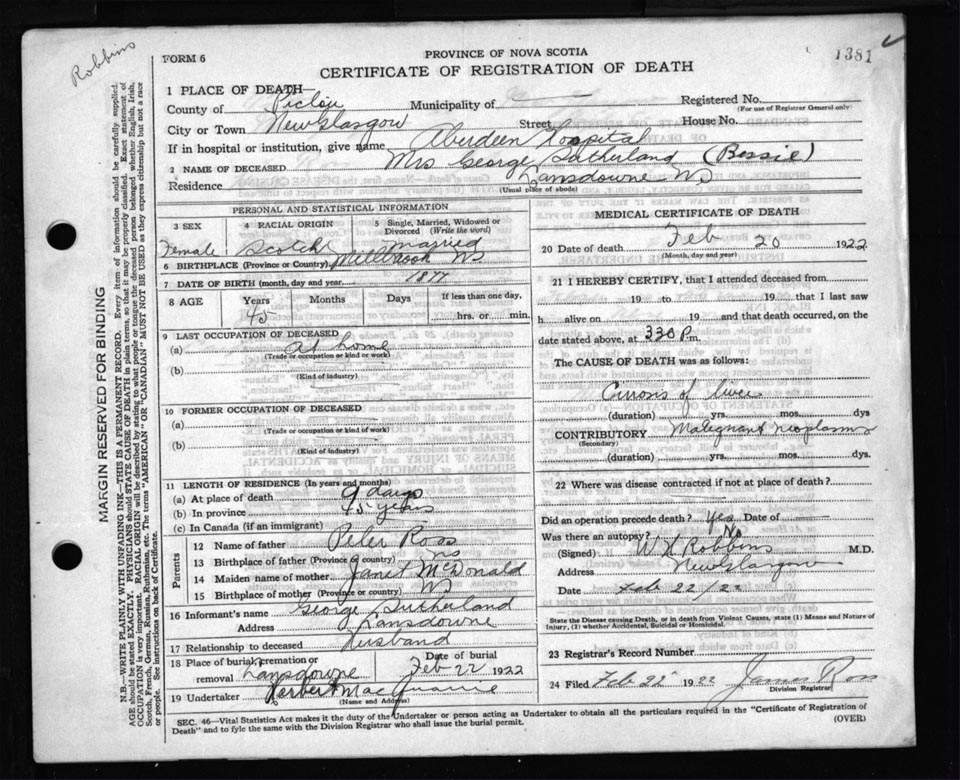 Robbins
1381
FORM 6
PROVINCE OF NOVA SCOTIA
CERTIFICATE OF REGISTRATION OF DEATH
1 PLACE OF DEATH—
County of Pictou Municipality of Registered No.
(For use of Registrar General only)
City or Town New Glasgow Street House No.
If in hospital or institution, give name Aberdeen Hospital
2 NAME OF DECEASED Mrs George Sutherland (Bessie)
Residence Lansdowne NS
(Usual place of abode)
PERSONAL AND STATISTICAL INFORMATION
3 SEX 4 RACIAL ORIGIN 5 Single, Married, Widowed or Divorced (Write the word)
Female Scotch married
6 BIRTHPLACE (Province or Country) Millbrook NS
7 DATE OF BIRTH (month, day and year) 1877
8 AGE Years Months Days If less than one day,
45 hrs. or min.
9 LAST OCCUPATION OF DECEASED
(a) At home
(Trade or occupation or kind or work)
(b)
(Kind of industry)
10 FORMER OCCUPATION OF DECEASED
(a)
(Trade or occupation or kind or work)
(b)
(Kind of industry)
11 LENGTH OF RESIDENCE (In years and months)
(a) At place of death 9 days
(b) In province 45 years
(c) In Canada (if an immigrant)
Parents
12 Name of father Peter Ross
13 Birthplace of father (Province or country) NS
14 Maiden name of mother Janet McDonald
15 Birthplace of mother (Province or country) NS
16 Informant's name George Sutherland
Address Lansdowne
17 Relationship to deceased Husband
18 Place of burial, cremation or removal Lansdowne Date of burial Feb 22 1922
19 Undertaker Herbert MacQuarrie
(Name and Address)
MEDICAL CERTIFICATE OF DEATH
20 Date of death Feb 20 1922
(Month, day and year)
21 I HEREBY CERTIFY, that I attended deceased from
19 to 19 that I last saw
h alive on 19 and that death occurred, on the
date stated above, at 330 P m.
The CAUSE OF DEATH was as follows:
Cirrosis of liver
(duration) yrs. mos. dys
CONTRIBUTORY Malegnant neoplasms
(Secondary)
(duration) yrs. mos. dys
22 Where was disease contracted if not at place of death?
Did an operation precede death? Yes Date of
Was there an autopsy? No
(Signed) W H Robbins M.D.
Address New Glasgow
Date Feb 22/22
State the Disease causing Death, or in death from Violent Causes, state (1) Means and Nature of
Injury, (2) whether Accidental, Suicidal or Homicidal.
23 Registrar's Record Number
24 Filed Feb 22 1922 James Ross
Division Registrar
SEC. 46—Vital Statistics Act makes it the duty of the Undertaker or person acting as Undertaker to obtain all the particulars required in the "Certificate of Registration of
Death" and to fyle the same with the Division Registrar who shall issue the burial permit. (OVER)
MARGIN RESERVED FOR BINDING
N.B.—WRITE PLAINLY WITH UNFADING INK—THIS IS A PERMANENT RECORD. Every item of information should be carefully supplied.
AGE should be stated EXACTLY. PHYSICIANS should STATE CAUSE OF DEATH in plain terms, so that it may be properly classified. Exact statement of
OCCUPATION is very important. RACIAL ORIGIN will be described by stating to what people or tongue the deceased person belonged whether English, Irish,
Scotch, French, German, Russian, Ruthenian, etc. The terms "AMERICAN" OR "CANADIAN" MUST NOT BE USED as they express citizenship but not a race
or people. See instructions on back of Certificate.